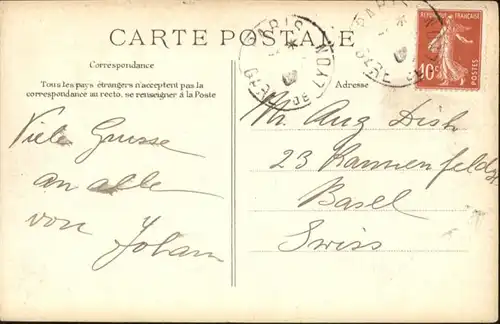 CARTE POSTALE
Correspondance
Tous les pays étrangers n'acceptent pas la
correspondance au recto, se renseigner à la Poste
Adresse
PARIS
GARE DE LYON
PARIS
GARE DE LYON
REPUBLIQUE FRANÇAISE
10c
POSTES
Viele Grüsse
an alle
von
Mr. Aug Dish
23 Kannenfeldstr
Basel
Swiss